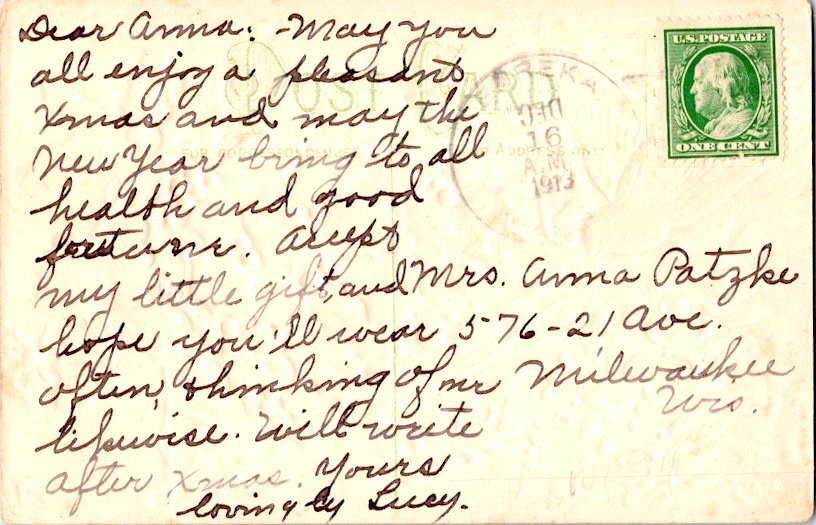 Dear Anna: - May you
all enjoy a pleasant
Xmas and may the
New Year bring to all
health and good
fortune. Accept
my little gift, and
hope you'll wear
often, thinking of me
likewise. Will write
after Xmas. Yours
lovingly Lucy.
POST CARD
FOR CORRESPONDENCE
ADDRESS ONLY
DEC
16
A.M.
1913
U.S. POSTAGE
ONE CENT
Mrs. Anna Patzke
576-21 Ave.
Milwaukee
Wis.